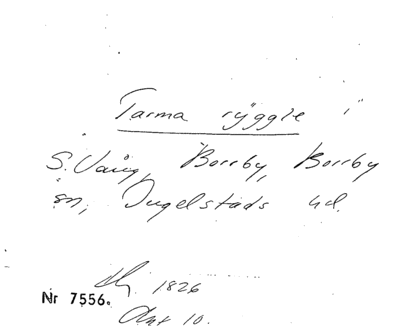 Tarma ryggle i
S. Vång, Borrby, Borrby
sn, Ingelstads hd.
1826
Nr 7556.
Akt 10.